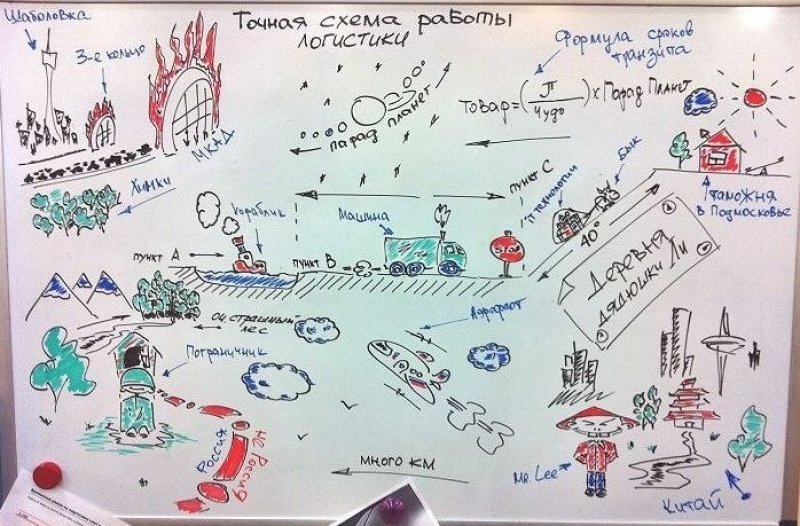 Точная схема работы
логистики
Шаболовка
3-е кольцо
МКАД
Химки
парад планет
Формула сроков
транзита
Товар = (П / Чудо) × Парад Планет
таможня
в Подмосковье
бык
IT технологии
40°
пункт С
Машина
кораблик
пункт А
пункт В
STOP
Деревня
дядюшки Ли
ой, страшный
лес
Пограничник
Аэрофлот
Россия
не Россия
много км
Mr. Lee
Китай